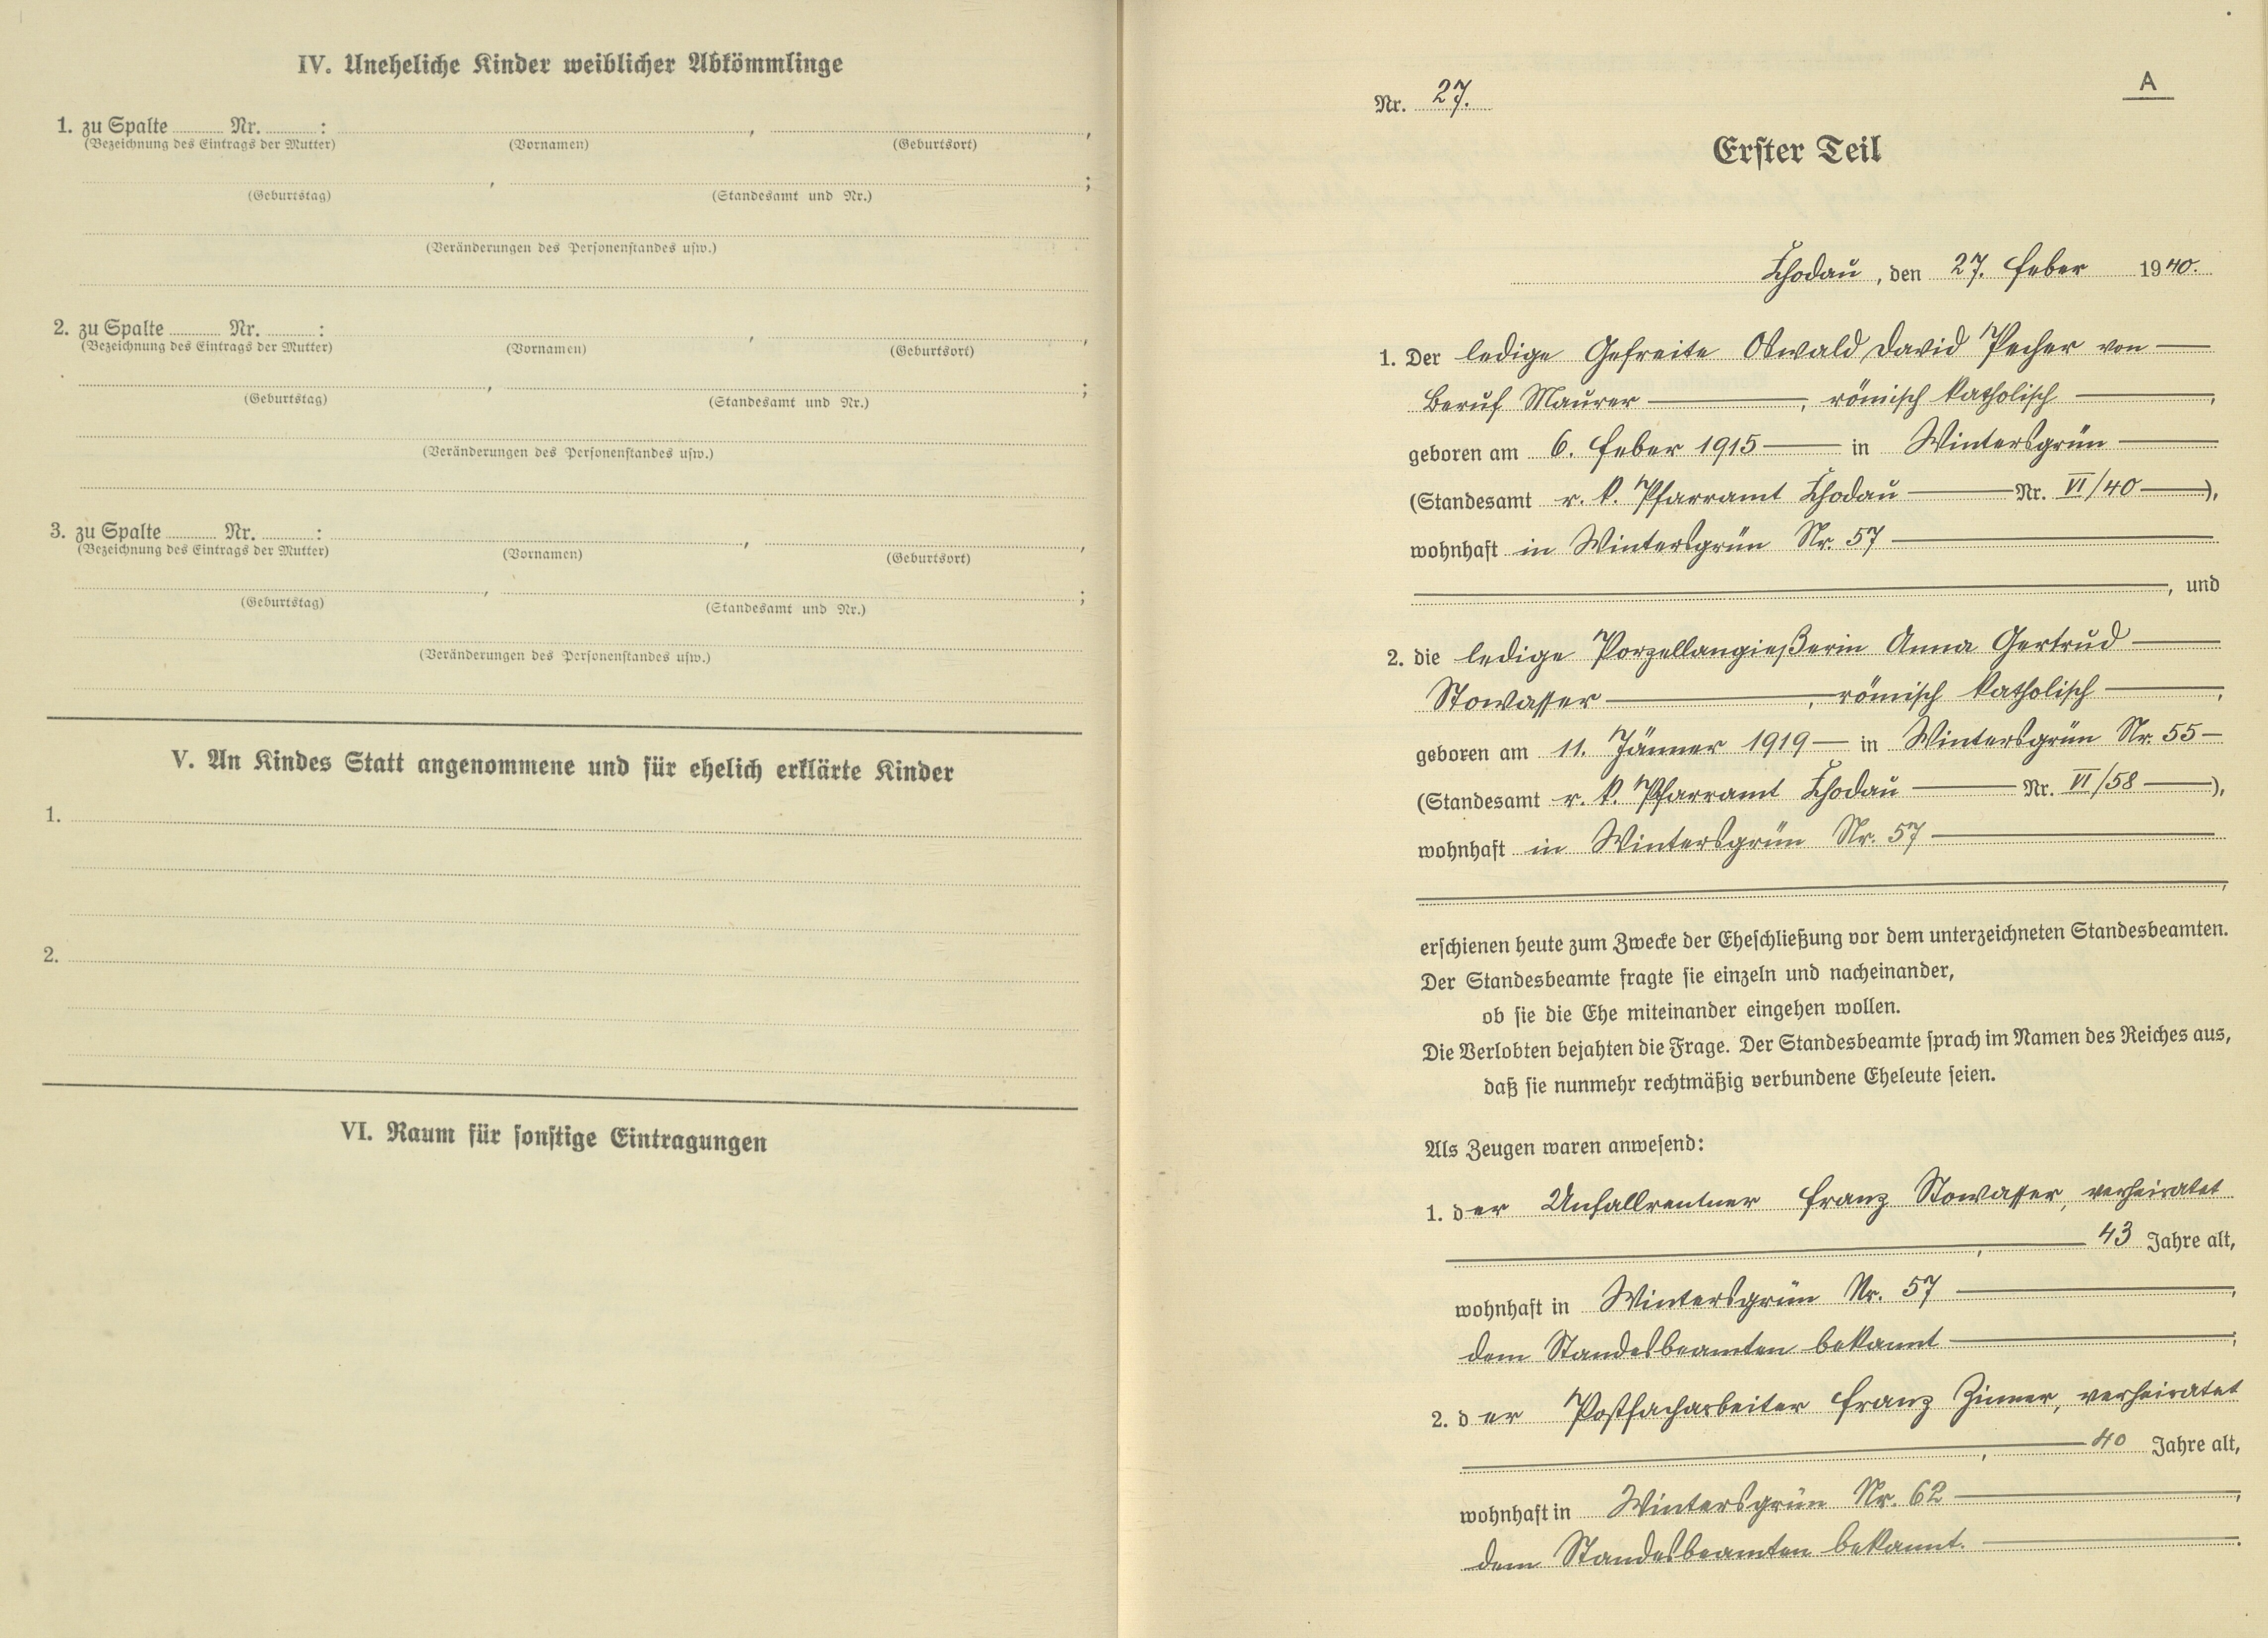 IV. Uneheliche Kinder weiblicher Abkömmlinge
1. zu Spalte ........ Nr. ........ : ........ , ........ ,
(Bezeichnung des Eintrags der Mutter) (Vornamen) (Geburtsort)
........ , ........ ;
(Geburtstag) (Standesamt und Nr.)
(Veränderungen des Personenstandes usw.)
2. zu Spalte ........ Nr. ........ : ........ , ........ ,
(Bezeichnung des Eintrags der Mutter) (Vornamen) (Geburtsort)
........ , ........ ;
(Geburtstag) (Standesamt und Nr.)
(Veränderungen des Personenstandes usw.)
3. zu Spalte ........ Nr. ........ : ........ , ........ ,
(Bezeichnung des Eintrags der Mutter) (Vornamen) (Geburtsort)
........ , ........ ;
(Geburtstag) (Standesamt und Nr.)
(Veränderungen des Personenstandes usw.)
V. An Kindes Statt angenommene und für ehelich erklärte Kinder
1.
2.
VI. Raum für sonstige Eintragungen
A
Nr. 27.
Erster Teil
Chodau, den 27. Feber 1940.
1. Der ledige Gefreite Oswald David Pecher von —
Beruf Maurer —, römisch katholisch —,
geboren am 6. Feber 1915 — in Wintersgrün —
(Standesamt r. k. Pfarramt Chodau — Nr. VI/40 —),
wohnhaft in Wintersgrün Nr. 57 —
—, und
2. die ledige Porzellangießerin Anna Gertrud —
Stowasser —, römisch katholisch —,
geboren am 11. Jänner 1919 — in Wintersgrün Nr. 55 —
(Standesamt r. k. Pfarramt Chodau — Nr. VI/58 —),
wohnhaft in Wintersgrün Nr. 57 —
—,
erschienen heute zum Zwecke der Eheschließung vor dem unterzeichneten Standesbeamten.
Der Standesbeamte fragte sie einzeln und nacheinander,
ob sie die Ehe miteinander eingehen wollen.
Die Verlobten bejahten die Frage. Der Standesbeamte sprach im Namen des Reiches aus,
daß sie nunmehr rechtmäßig verbundene Eheleute seien.
Als Zeugen waren anwesend:
1. der Unfallrentner Franz Stowasser, verheiratet
—, — 43 Jahre alt,
wohnhaft in Wintersgrün Nr. 57 —,
dem Standesbeamten bekannt —;
2. der Postfacharbeiter Franz Zinner, verheiratet
—, — 40 Jahre alt,
wohnhaft in Wintersgrün Nr. 62 —,
dem Standesbeamten bekannt. —.